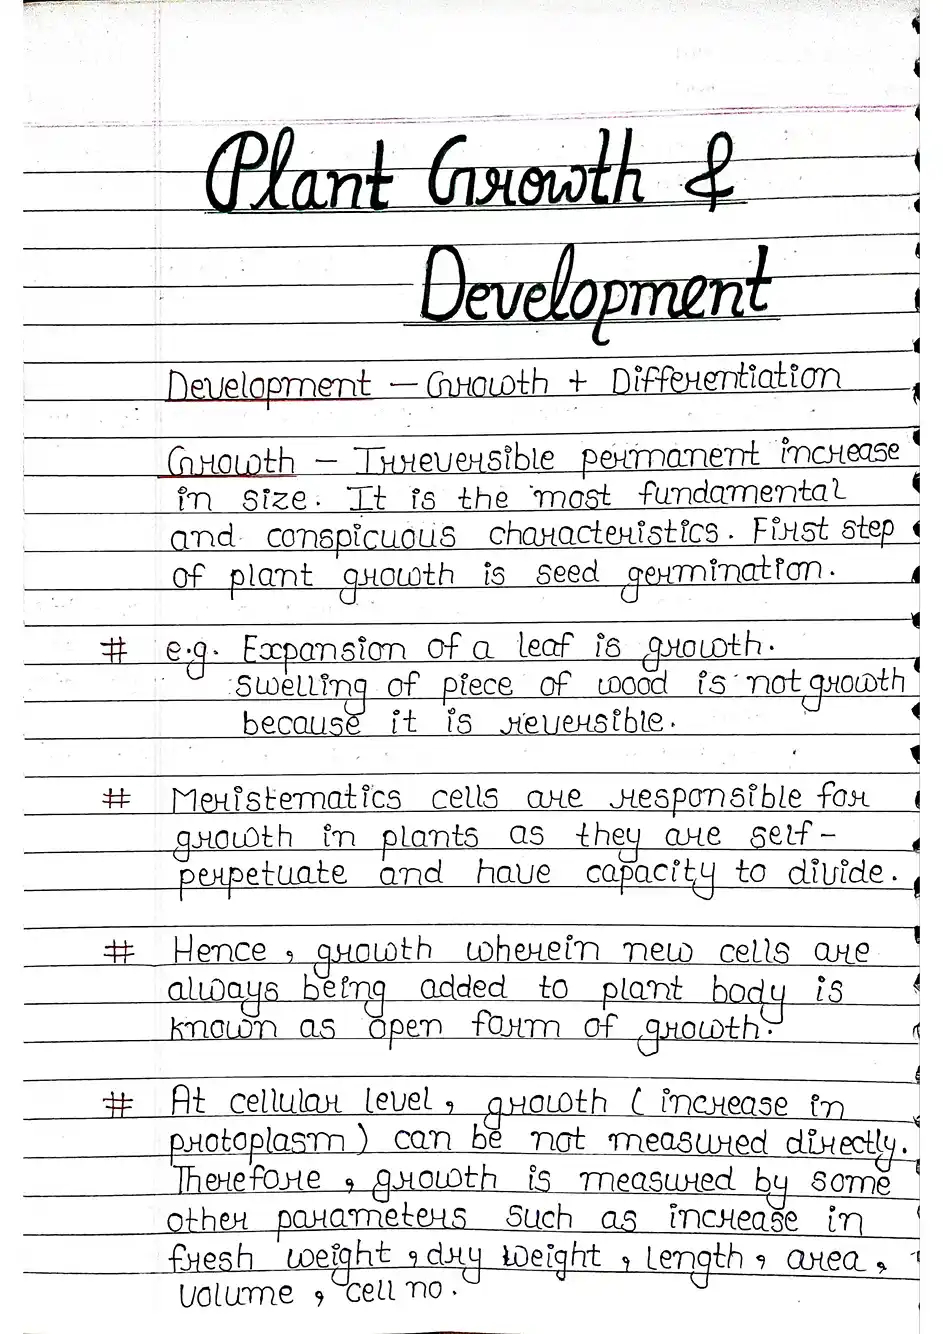 Plant Growth &
Development
Development – Growth + Differentiation
Growth – Irreversible permanent increase
in size. It is the most fundamental
and conspicuous characteristics. First step
of plant growth is seed germination.
# e.g. Expansion of a leaf is growth.
Swelling of piece of wood is not growth
because it is reversible.
# Meristematics cells are responsible for
growth in plants as they are self-
perpetuate and have capacity to divide.
# Hence, growth wherein new cells are
always being added to plant body is
known as open form of growth.
# At cellular level, growth (increase in
protoplasm) can be not measured directly.
Therefore, growth is measured by some
other parameters such as increase in
fresh weight, dry weight, length, area,
volume, cell no.